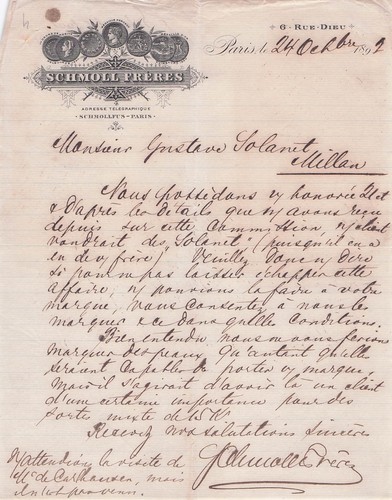 6 - RUE-DIEU
Paris, le 24 Octbre 1892
SCHMOLL FRÈRES
ADRESSE TÉLÉGRAPHIQUE
SCHMOLLFUS - PARIS
Monsieur Gustave Solanet
Millau
Nous possédons v/ honorée 21 ct
& d'après les détails que n/ avons reçu
depuis sur cette Commission, n/ client
voudrait des "Solanet" (puisqu'il en a
en de v/ frère) Veuillez donc n/ dire
si pour ne pas laisser échapper cette
affaire, n/ pouvions la faire à votre
marque, vous consentez à nous les
marquer & ce dans quelles conditions.
Bien entendu, nous ne vous ferions
marquer des peaux qu'autant qu'elles
seraient capables de porter v/ marque,
mais il s'agirait d'avoir là un client
d'une certaine importance pour des
sortes mixte de
Recevez nos salutations sincères
Schmoll Frères
N/ attendions la visite de
Mr de Carlhausen, mais